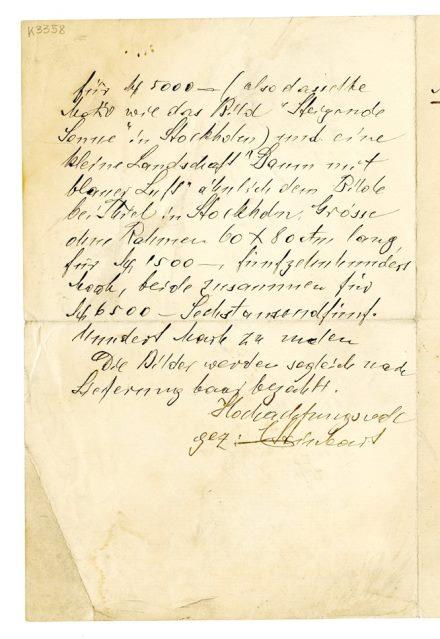 K3358
für M 5000 – (also dasselbe
Motiv wie das Bild "Steigende
Sonne" in Stockholm) und eine
kleine Landschaft "Baum mit
blauer Luft" ähnlich dem Bilde
bei Thiel in Stockholm, Grösse
ohne Rahmen 60 X 80 ctm lang,
für M 1500 –, fünfzehnhundert
Mark, beide zusammen für
M 6500 – Sechstausendfünf-
hundert Mark zu
Die Bilder werden sogleich nach
Lieferung baar bezahlt.
Hochachtungsvoll
gez: